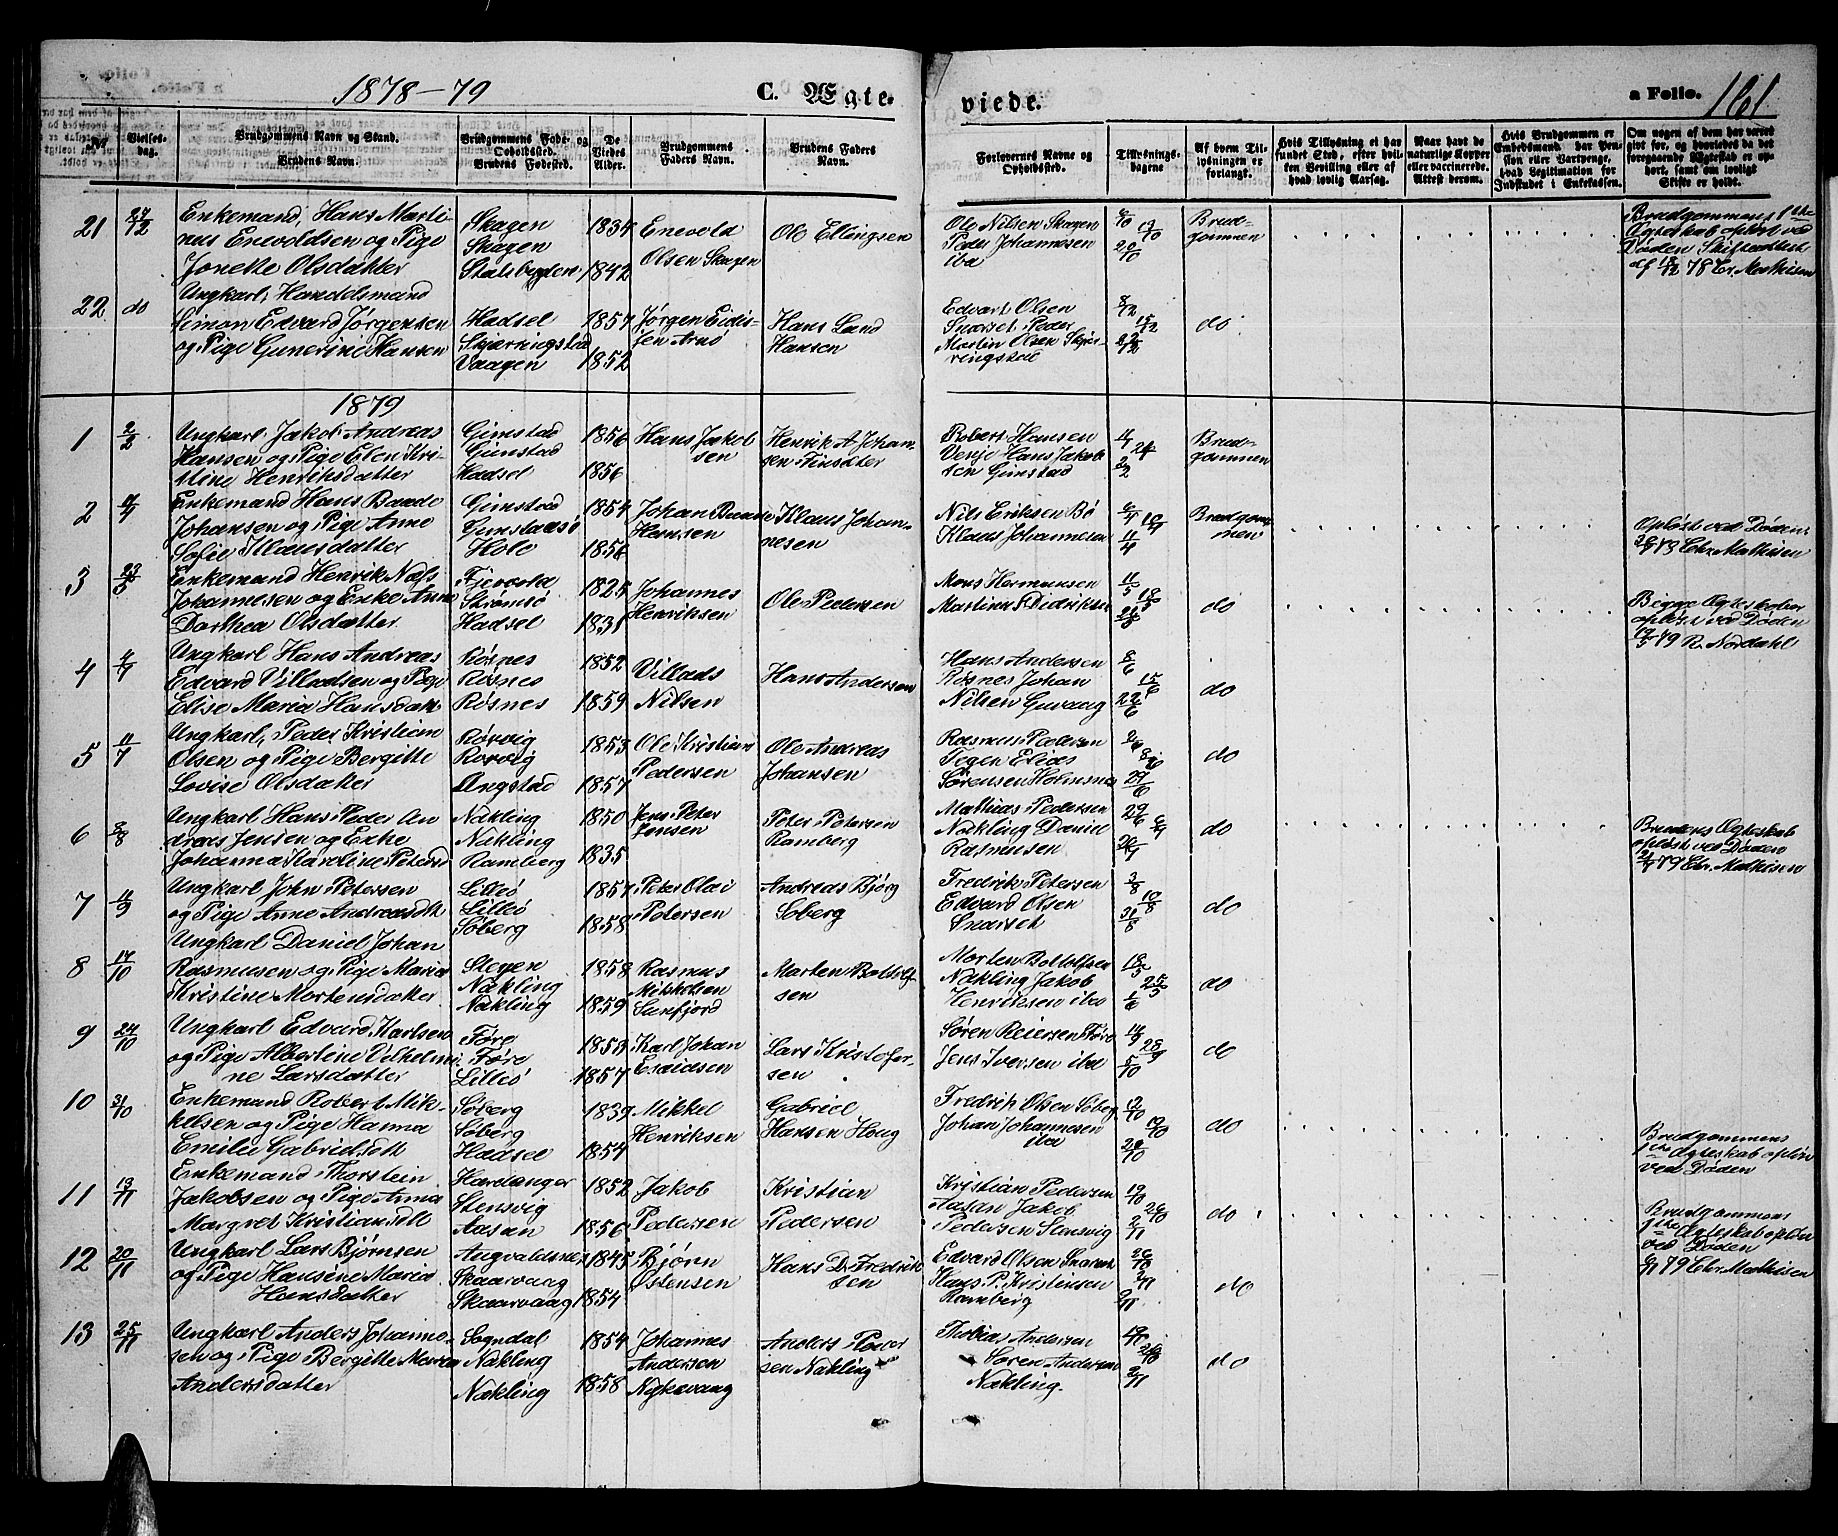 1878-79
C. Ægte-
viede.
a Folio. 161
№
Vielses-dag.
Brudgommens Navn og Stand.
Brudens Navn.
Brudgommens Føde- og Opholdssted.
Brudens Fødested.
De Viedes Alder.
Brudgommens Faders Navn.
Brudens Faders Navn.
Forlovernes Navne og Opholdssted.
Tillysnings-dagene
Af hvem Tillysningen er forlangt.
Hvis Tillysning ei har fundet Sted, efter hvilken Bevilling eller af hvad lovlig Aarsag.
Naar havt de naturlige Kopper eller vaccinerede. Attest derom.
Hvis Brudgommen er Embedsmand, har Pension eller Vartpenge, hvad Legitimation for Indskudet i Enkekassen.
Om nogen af dem har været givt før, og hvorledes da det foregaaende Ægteskab er ophørt, samt om lovligt Skifte er holdt.
21 27/12 Enkemand, Hans Marti-
nus Enevoldsen og Pige
Jonette Olsdatter
Skagen
Skagen
Stalsbygden
1834
1842
Enevold
Olsen Skagen
Ole Ellingsen
Ole Nilsen Skagen
Peder Johannesen
iba
6/10 13/10 20/10
Brud-
gommen
Brudgommens 1ste
Ægteskab opløst ved
Døden Skifteattest
af 12/12 78 Chr. Mathisen
22 do Ungkarl, Handelsmand
Simon Edvard Jørgensen
og Pige Gunerine Hansen
Hadsel
Skjærringstad
Vaagen
1857
1852
Jørgen Eidis-
sen Arnø
Hans Lund
Hansen
Edvart Olsen
Snarset, Peder
Martin Olsen Skjær-
ringstad
8/12 15/12 22/12
do
1879
1 2/2 Ungkarl, Jakob Andreas
Hansen og Pige Elen Kri-
stine Henriksdatter
Gimstad
Gimstad
Hadsel
1856
1856
Hans Jakob
sen
Henrik A Johan-
sen Finsæter
Robert Hansen
Vesje Hans Jakob
sen Gimstad
Brud-
gommen
2 17/4 Enkemand Hans Baade
Johansen og Pige Anne
Sofie Klausdatter
Gimstad
Gimstadsø
Hole
1854
1856
Johan Baade
Hansen
Klaus Johan-
nesen
Nils Eriksen Bø
Klaus Johannesen
Brudgom-
men
Opløst ved Døden
Chr. Mathisen
3 23/5 Enkemand Henrik Næss
Johannesen og Enke Anne
Dorthea Olsdatter
Fjevold
Strømsø
Hadsel
1825
1831
Johannes
Henriksen
Ole Pedersen
Mons Hermansen
Martinus Didriksen
11/5 18/5
do
Begge Ægteskaber
opløst ved Døden
12/5 79 R. Nordahl
4 Ungkarl Hans Andreas
Edvard Villadsen og Pige
Elise Maria Hansdatt.
Røsnes
Røsnes
Røsnes
1852
1859
Villads
Nilsen
Hans Andersen
Hans Andersen
Røsnes Johan
Nilsen Guvaag
8/6 15/6 22/6
do
5 11/7 Ungkarl, Peder Kristian
Olsen og Pige Bergitte
Lovise Olsdatter
Rørvig
Rørvig
Angstad
1853
1857
Ole Kristian
Pedersen
Ole Andreas
Johansen
Rasmus Pedersen
Tegen Elias
Sørensen Holmsnes
do
6 3/8 Ungkarl Hans Peder An
dreas Jensen og Enke
Johanna Karoline Petersd
Nækling
Nækling
Ramberg
1850
1835
Jens Peter
Jensen
Peter Petersen
Ramberg
Mathias Pedersen
Nækling Daniel
Rasmussen
29/6 6/7
do
Brudens Ægteskab
opløst ved Døden
Chr. Mathisen
7 11/9 Ungkarl John Petersen
og Pige Anne Andreasdtt
Lilleø
Lilleø
Søberg
1857
1858
Peter Olai
Petersen
Andreas Bjørg
Søberg
Fredrik Petersen
Edvard Olsen
Snarset
3/8 10/8 31/8
do
8 17/10 Ungkarl Daniel Johan
Rasmusen og Pige Maria
Kristine Mortensdatter
Stegen
Nækling
Nækling
1858
1859
Rasmus
Mikkelsen
Sunfjord
Morten Bottolf
sen
Morten Bottolfsen
Nækling Jakob
Henriksen iba
18/5 25/5 1/6
do
9 24/10 Ungkarl Edvard Karlsen
og Pige Albertine Vilhelmi-
ne Larsdatter
Føre
Føre
Lilleø
1853
1857
Karl Johan
Esaidsen
Lars Kristofer-
sen
Søren Reiersen Føre
Jens Iversen iba
14/9 28/9 5/10
do
10 31/10 Enkemand Robert Mik-
kelsen og Pige Hanna
Emilie Gabrielsdtt
Søberg
Søberg
Hadsel
1839
1854
Mikkel
Henriksen
Gabriel
Hansen Houg
Fredrik Olsen Søberg
Johan Johannesen
iba
12/10 19/10 26/10
do
Brudgommens
1ste Ægteskab opløst
ved Døden
11 13/11 Enkemand Thorstein
Jakobsen og Pige Anna
Margret Kristiansdtt
Hardanger
Stensvig
Aasan
1852
1856
Jakob
Pedersen
Kristian
Pedersen
Kristian Pedersen
Aasan Jakob
Pedersen Stensvig
19/10 26/10 2/11
do
Brudgommens
1ste Ægteskab opløst
ved Døden
79 Chr. Mathisen
12 20/11 Ungkarl Lars Bjørnsen
og Pige Hansine Maria
Hansdatter
Angvaldsnes
Skaarvaag
Skaarvaag
1845
1854
Bjørn
Østensen
Hans D. Fredrik
sen
Edvard Olsen Snarset
Hans P. Kristensen
Ramberg
26/10 2/11 9/11
do
13 25/11 Ungkarl Anders Johanne-
sen og Pige Bergitte Maren
Andersdatter
Sogndal
Nækling
Nækling
1854
1858
Johannes
Andersen
Nykvaag
Anders Peder
sen Nækling
Thobias Andersen
Søren Andersen
Nækling.
19/10 26/10 2/11
do